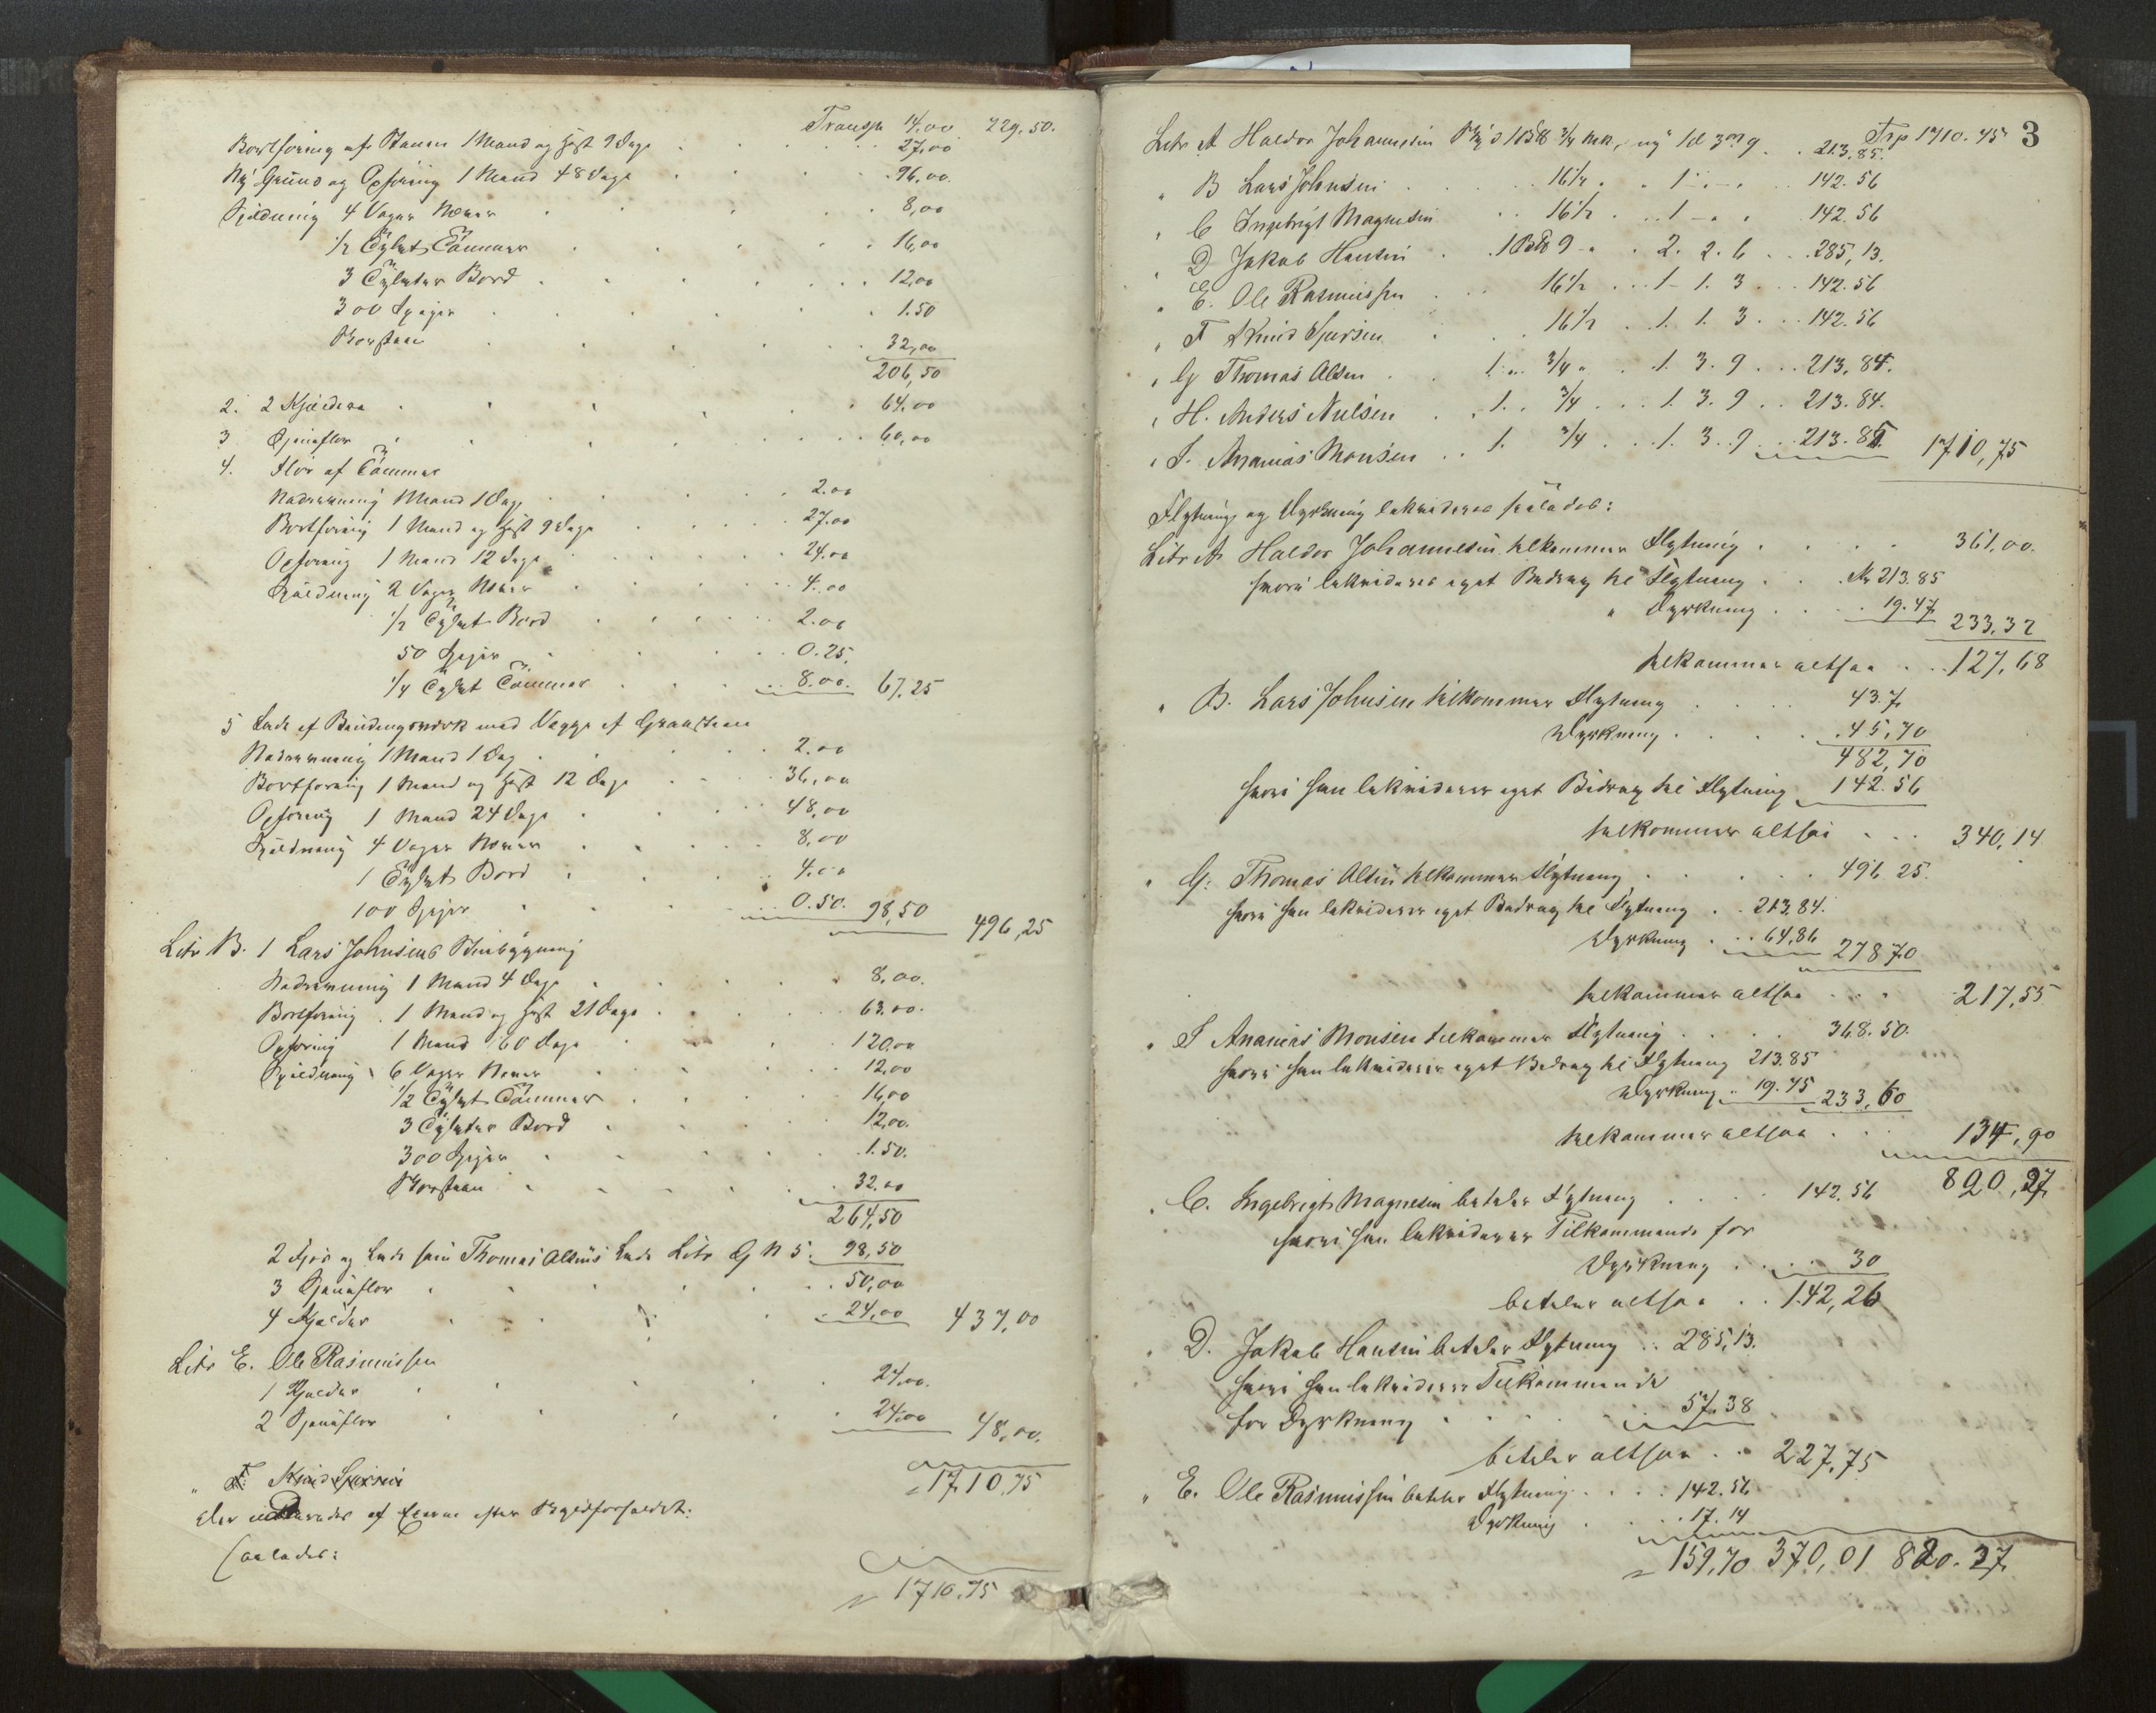 Transp 14.00 729.50.
Bortføring af Stenen 1 Mand og Hest 9 Dage 27,00
Ny Grund og Opføring 1 Mand 48 Dage 96,00.
Spildning 4 Voger Never 8,00
1/2 Tylvt Tömmer 16,00
3 Tylvter Bord 12,00
300 Spiger 1.50
Skorsteen 32,00
206,50
2. 2 Kjældere 64.00
3 Grisneflor 60,00
4. Flor af Tömmer
Nedrivning 1 Mand 1 Dag 2.00
Bortføring 1 Mand og Hest 9 Dage 27.00
Opføring 1 Mand 12 Dage 24.00
Spildning 2 Voger Never 4.00
1/2 Tylvt Bord 2.00
50 Spiger 0.25.
1/4 Tylvt Tömmer 8.00. 67,25
5 Lade af Bindingsværk med Vægge af Graasteen
Nedrivning 1 Mand 1 Dag 2.00
Bortføring 1 Mand og Hest 12 Dage 36,00
Opføring 1 Mand 24 Dage 48,00
Spildning 4 Voger Never 8,00
1 Tylvt Bord 4.00
100 Spiger 0.50. 98,50 496,25
Litr B. 1 Lars Johnsens Stuebygning
Nedrivning 1 Mand 4 Dage 8,00.
Bortføring 1 Mand og Hest 21 Dage 63.00.
Opføring 1 Mand 60 Dage 120.00
Spildning 6 Voger Never 12,00
1/2 Tylvt Tömmer 16,00
3 Tylvter Bord 12,00.
300 Spiger 1.50.
Skorsteen 32.00
264,50
2 og Lade som Thomas Olsens Lade Litr G N 5. 98,50
3 50,00
4 Kjelder 24,00 437,00
Litr E. Ole Rasmussen
1 Kjelder 24,00.
2 24.00 48,00.
1710.75
" F. Knud
der udredes af Eierne efter Skyldforholdet:
saaledes:
1710.75
Trp 1710.75 3
Litr A Haldor Johannesen 1 3/4 ny 1d 3ort 9 213.85.
" B Lars Johnsen 16 1/2 1 142.56
" C Ingebrigt Magnesen 16 1/2 1 142.56
" D Jakob Hansen 1 9 2. 2. 6 285,13.
" E. Ole Rasmussen 16 1/2 1 1. 3 142.56
" F Knud 16 1/2 1. 1. 3 142.56
" G Thomas Olsen 1 3/4 1. 3. 9 213,84.
" H. Anders Nielsen 1. 3/4 1. 3. 9 213.84.
" I. Ananias Monsen 1. 3/4 1. 3. 9 213.85 1710,75
Flytning og Dyrkning likvideres saaledes:
Litr A Haldor Johannesen tilkommer Flytning 361,00.
hvori likvideres eget Bidrag til Flytning Kr 213.85
" Dyrkning 19.47 233,32
tilkommer altsaa 127,68
" B. Lars Johnsen tilkommer Flytning 437,
Dyrkning 45,70
482,70
hvori han likviderer eget Bidrag til Flytning 142.56
tilkommer altsaa 340,14
" G. Thomas Olsen tilkommer Flytning 496 25.
hvori han likviderer eget Bidrag til Flytning 213,84.
Dyrkning 64,86 278 70
tilkommer altsaa 217,55
" I Ananias Monsen tilkommer Flytning 368.50.
hvori han likviderer eget Bidrag til Flytning 213.85
Dyrkning 19.75 233,60
tilkommer altsaa 134,90
820,27
" C. Ingebrigt Magnesen betaler Flytning 142.56
hvori han likviderer Tilkommende for
Dyrkning 30
betaler altsaa 142,26
" D. Jakob Hansen betaler Flytning 285,13.
hvori han likviderer Tilkommende
for Dyrkning 57.38
betaler altsaa 227,75
" E. Ole Rasmussen betaler Flytning 142.56
Dyrkning 17.14
159,70 370,01 820.27